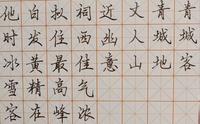 青城客
青城地
丈人山
近幽意
祠西佳气浓
拟住最高峰
白发黄精在
他时冰雪容